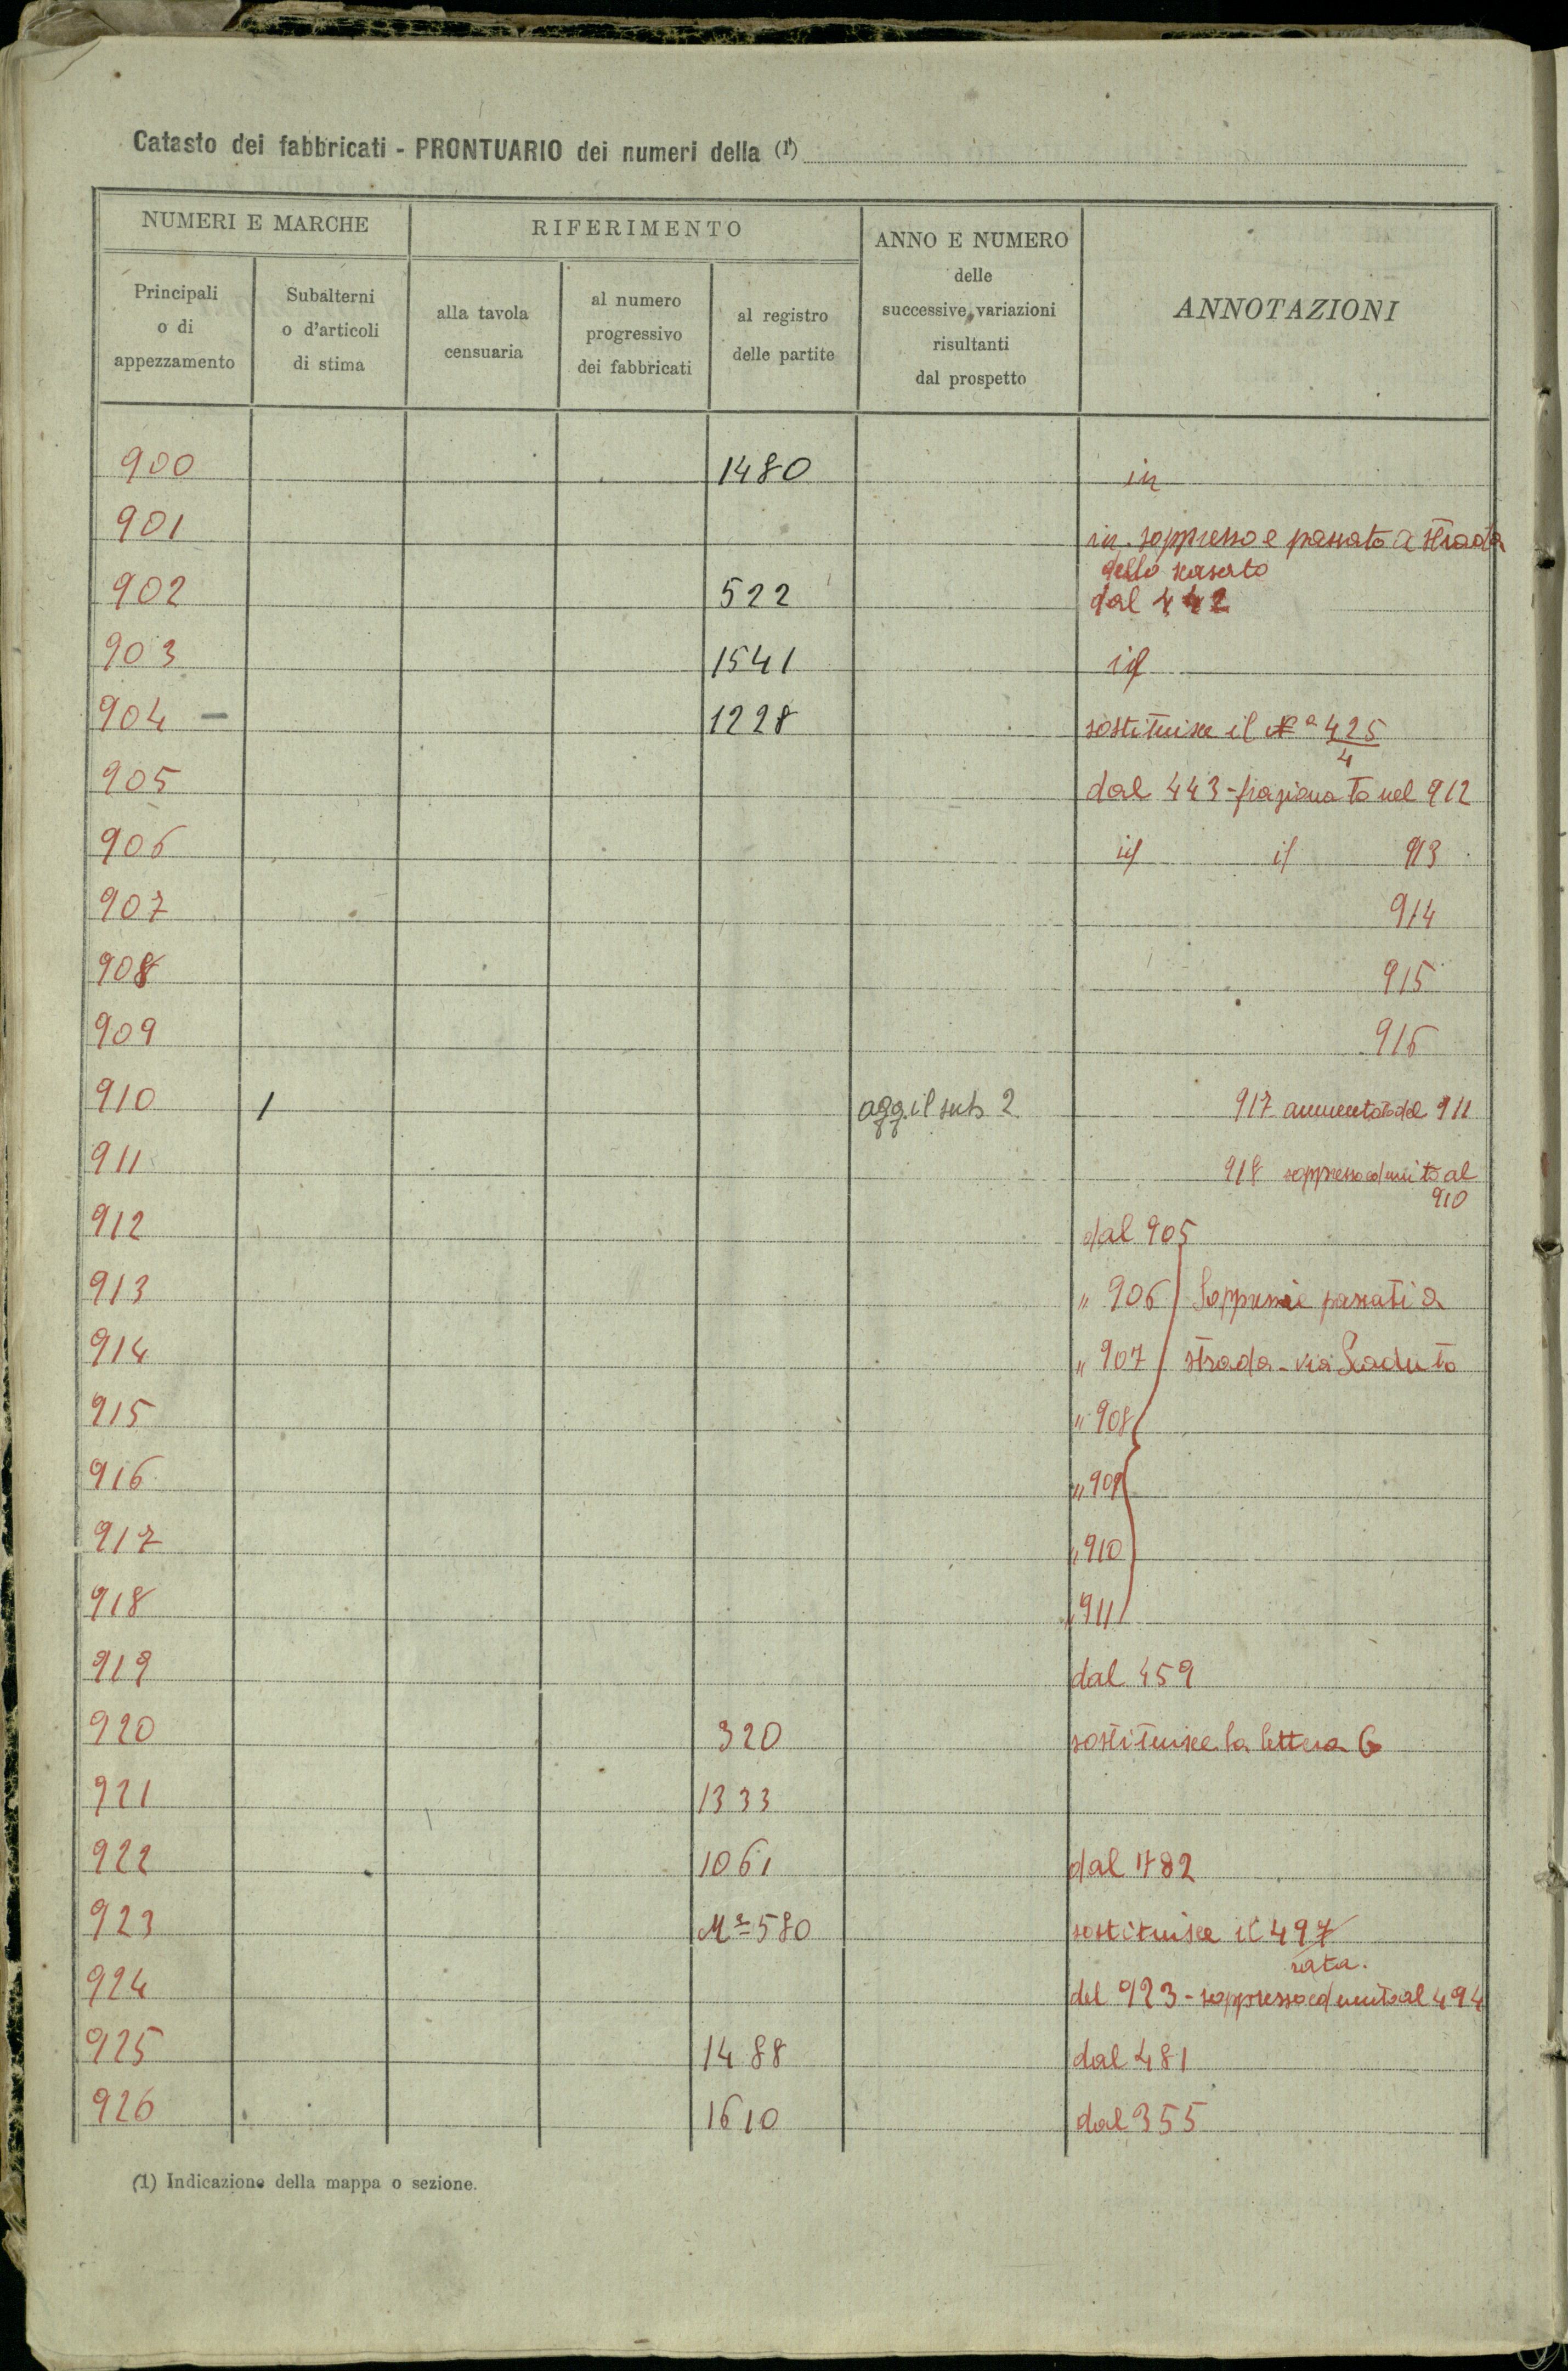 Catasto dei fabbricati - PRONTUARIO dei numeri della (1)
NUMERI E MARCHE
RIFERIMENTO
ANNO E NUMERO
delle
successive variazioni
risultanti
dal prospetto
ANNOTAZIONI
Principali
o di
appezzamento
Subalterni
o d'articoli
di stima
alla tavola
censuaria
al numero
progressivo
dei fabbricati
al registro
delle partite
900 1480
901 soppresso e passato a strada
dello
902 522 dal 442
903 1541 id
904 — 1228 sostituisce il N° 425/4
905 dal 443 - frazionato nel 912
906 id id 913
907 914
908 915
909 916
910 1 agg. il sub 2 917 aumentato del 911
911 918 soppresso ed unito al
910
912 dal 905
913 " 906 Soppressi e passati a
914 " 907 strada - via Scaduto
915 " 908
916 " 909
917 " 910
918 " 911
919 dal 459
920 320 sostituisce la lettera G
921 1333
922 1061 dal 482
923 Ma 580 sostituisce il 497
rata.
924 del 923 - soppresso ed unito al 494
925 1488 dal 481
926 1610 dal 355
(1) Indicazione della mappa o sezione.